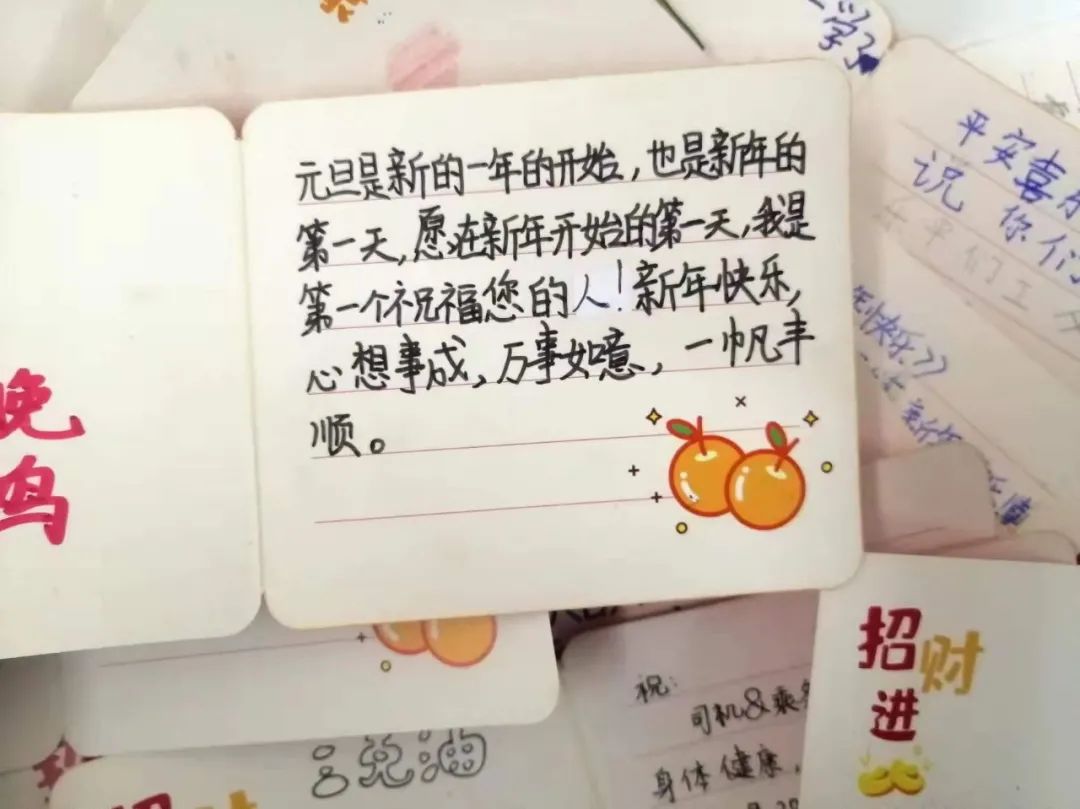 元旦是新的一年的开始，也是新年的
第一天，愿在新年开始的第一天，我是
第一个祝福您的人！新年快乐，
心想事成，万事如意，一帆丰
顺。
平安喜
你们
快乐
招财
进
祝：
司机&乘
身体健康，